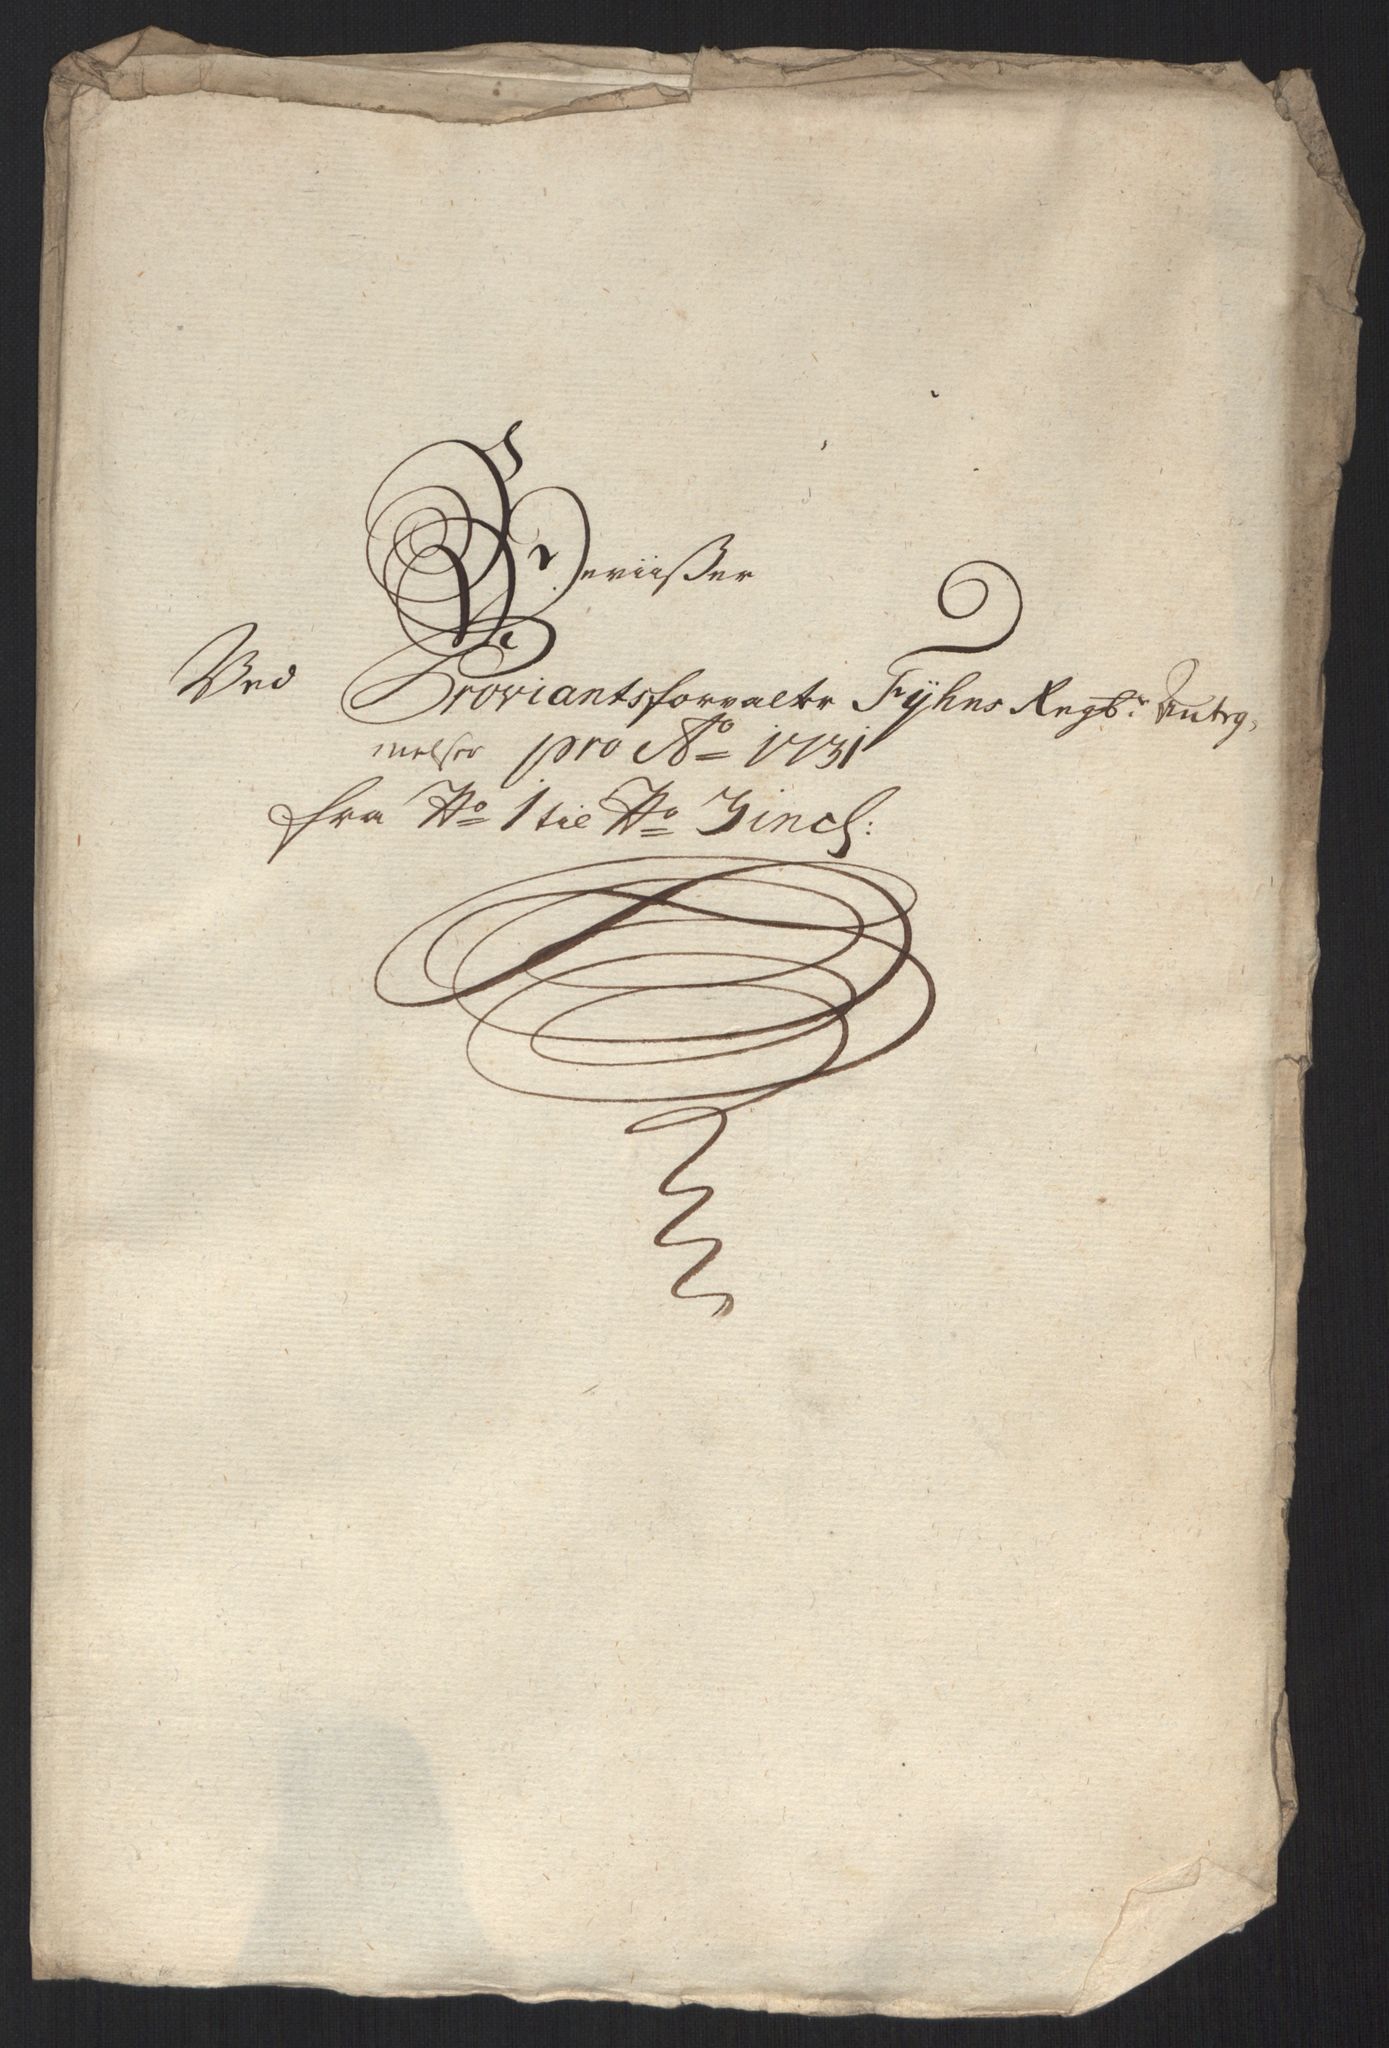 Beviisser
Ved Proviantsforvalter Fÿhns Regb:r Anteg,
nelser pro Ao 1731
fra No 1 til No 3 incl: